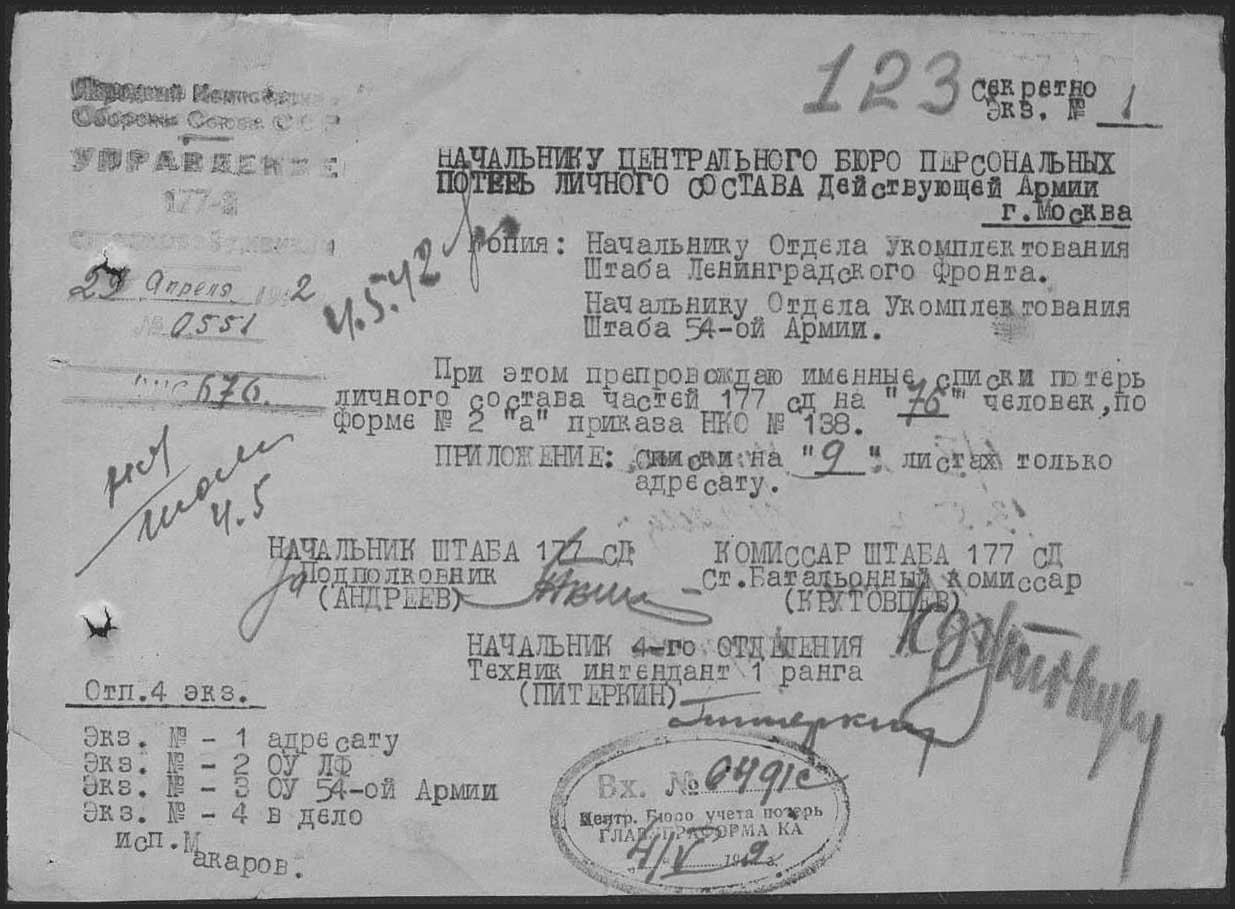 123
Секретно
Экз. № 1
Народный Комиссариат
Обороны Союза ССР
УПРАВЛЕНИЕ
177-й
стрелковой дивизии
29 Апреля 1942
№ 0551
676.
4.5.42
НАЧАЛЬНИКУ ЦЕНТРАЛЬНОГО БЮРО ПЕРСОНАЛЬНЫХ
ПОТЕРЬ ЛИЧНОГО СОСТАВА Действующей Армии
г.Москва
Копия: Начальнику Отдела Укомплектования
Штаба Ленинградского фронта.
Начальнику Отдела Укомплектования
Штаба 54-ой Армии.
При этом препровождаю именные списки потерь
личного состава частей 177 сд на "76" человек,по
форме № 2 "а" приказа НКО № 138.
ПРИЛОЖЕНИЕ: списки на "9" листах только
адресату.
4.5
НАЧАЛЬНИК ШТАБА 177 СД
Подполковник
(АНДРЕЕВ)
КОМИССАР ШТАБА 177 СД
Ст.Батальонный комиссар
(КРУТОВЦЕВ)
НАЧАЛЬНИК 4-го ОТДЕЛЕНИЯ
Техник интендант 1 ранга
(ПИТЕРКИН)
Питеркин
Отп.4 экз.
Экз. № - 1 адресату
Экз. № - 2 ОУ ЛФ
Экз. № - 3 ОУ 54-ой Армии
Экз. № - 4 в дело
исп.Макаров.
Вх. № 0491с
Центр. Бюро учета потерь
ГЛАВУПРАФОРМА КА
4/V 1942 г.